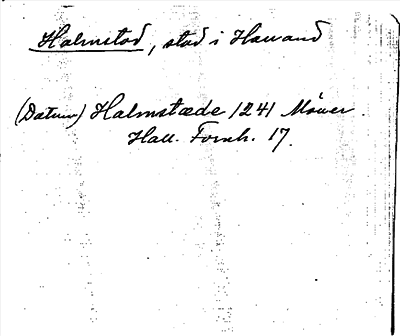 Halmstad, stad i Halland
(Datum) Halmstæde 1241 Möller
Hall. Fornh. 17.